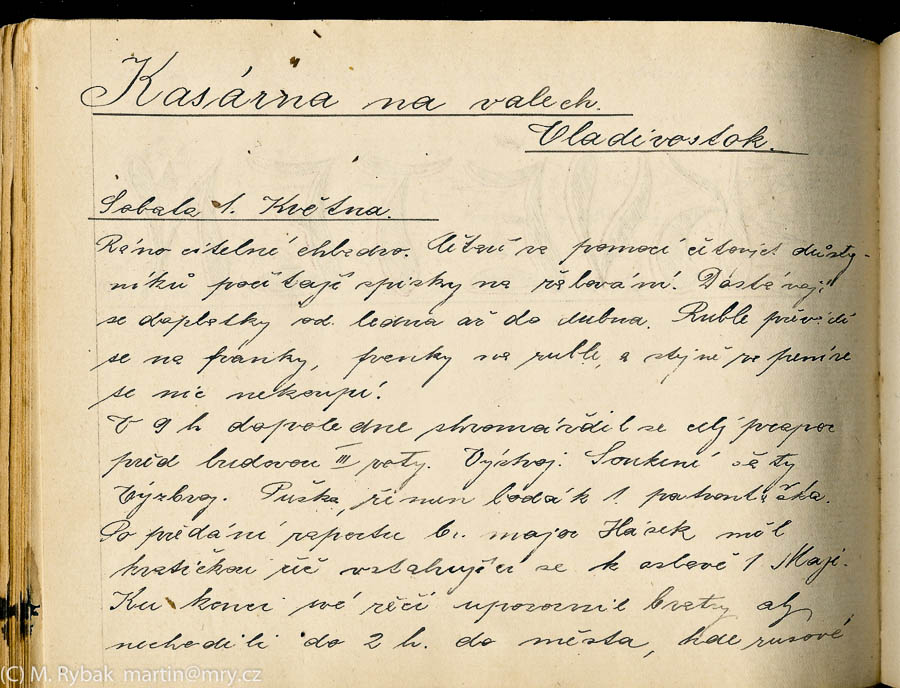 Kasárna na valech.
Vladivostok.
Sobota 1. Května.
Ráno citelně chladno. Účtaři za pomocí čítových důstoj-
níků počítají spisky na žalování. Dostávají
se doplatky od ledna až do dubna. Ruble převádí
se na franky, franky na ruble, a stejně za peníze
se nic nekoupí.
V 9 h dopoledne shromáždil se celý prapor
před budovou III roty. Výstroj. Soukené šaty
Výzbroj. Puška, řemen bodák 1. patrontaška.
Po předání raportu br. major Hásek měl
kratičkou řeč vztahující se k oslavě 1 Máje.
Ku konci své řeči upozornil bratry aby
nechodili do 2 h. do města, kde rusové
(C) M. Rybak martin@mry.cz